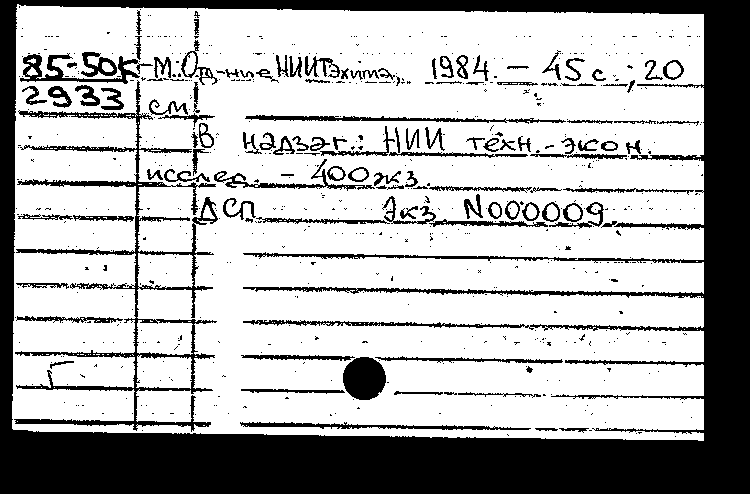 85-50К -М.: Отд-ние НИИТЭхима, 1984. - 45 с. ; 20
2933 см.
В надзаг.: НИИ техн.-экон.
исслед. - 400 экз.
ДСП Экз. N000009.
Г